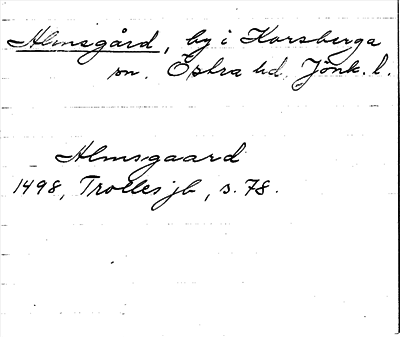 Almsgård, by i Korsberga
sn. Östra hd. Jönk. l.
Almsgaard
1498, Trolles jb, s. 78.